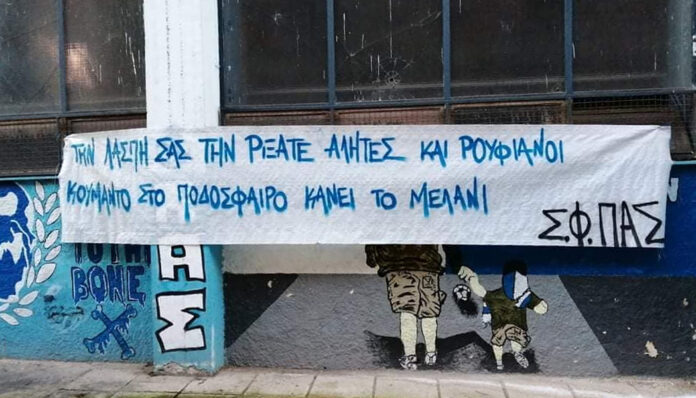 ΤΗΝ ΛΑΣΠΗ ΣΑΣ ΤΗΝ ΡΙΞΑΤΕ ΑΛΗΤΕΣ ΚΑΙ ΡΟΥΦΙΑΝΟΙ
ΚΟΥΜΑΝΤΟ ΣΤΟ ΠΟΔΟΣΦΑΙΡΟ ΚΑΝΕΙ ΤΟ ΜΕΛΑΝΙ
Σ.Φ. ΠΑΣ
TO THE
BONE
ΑΣ